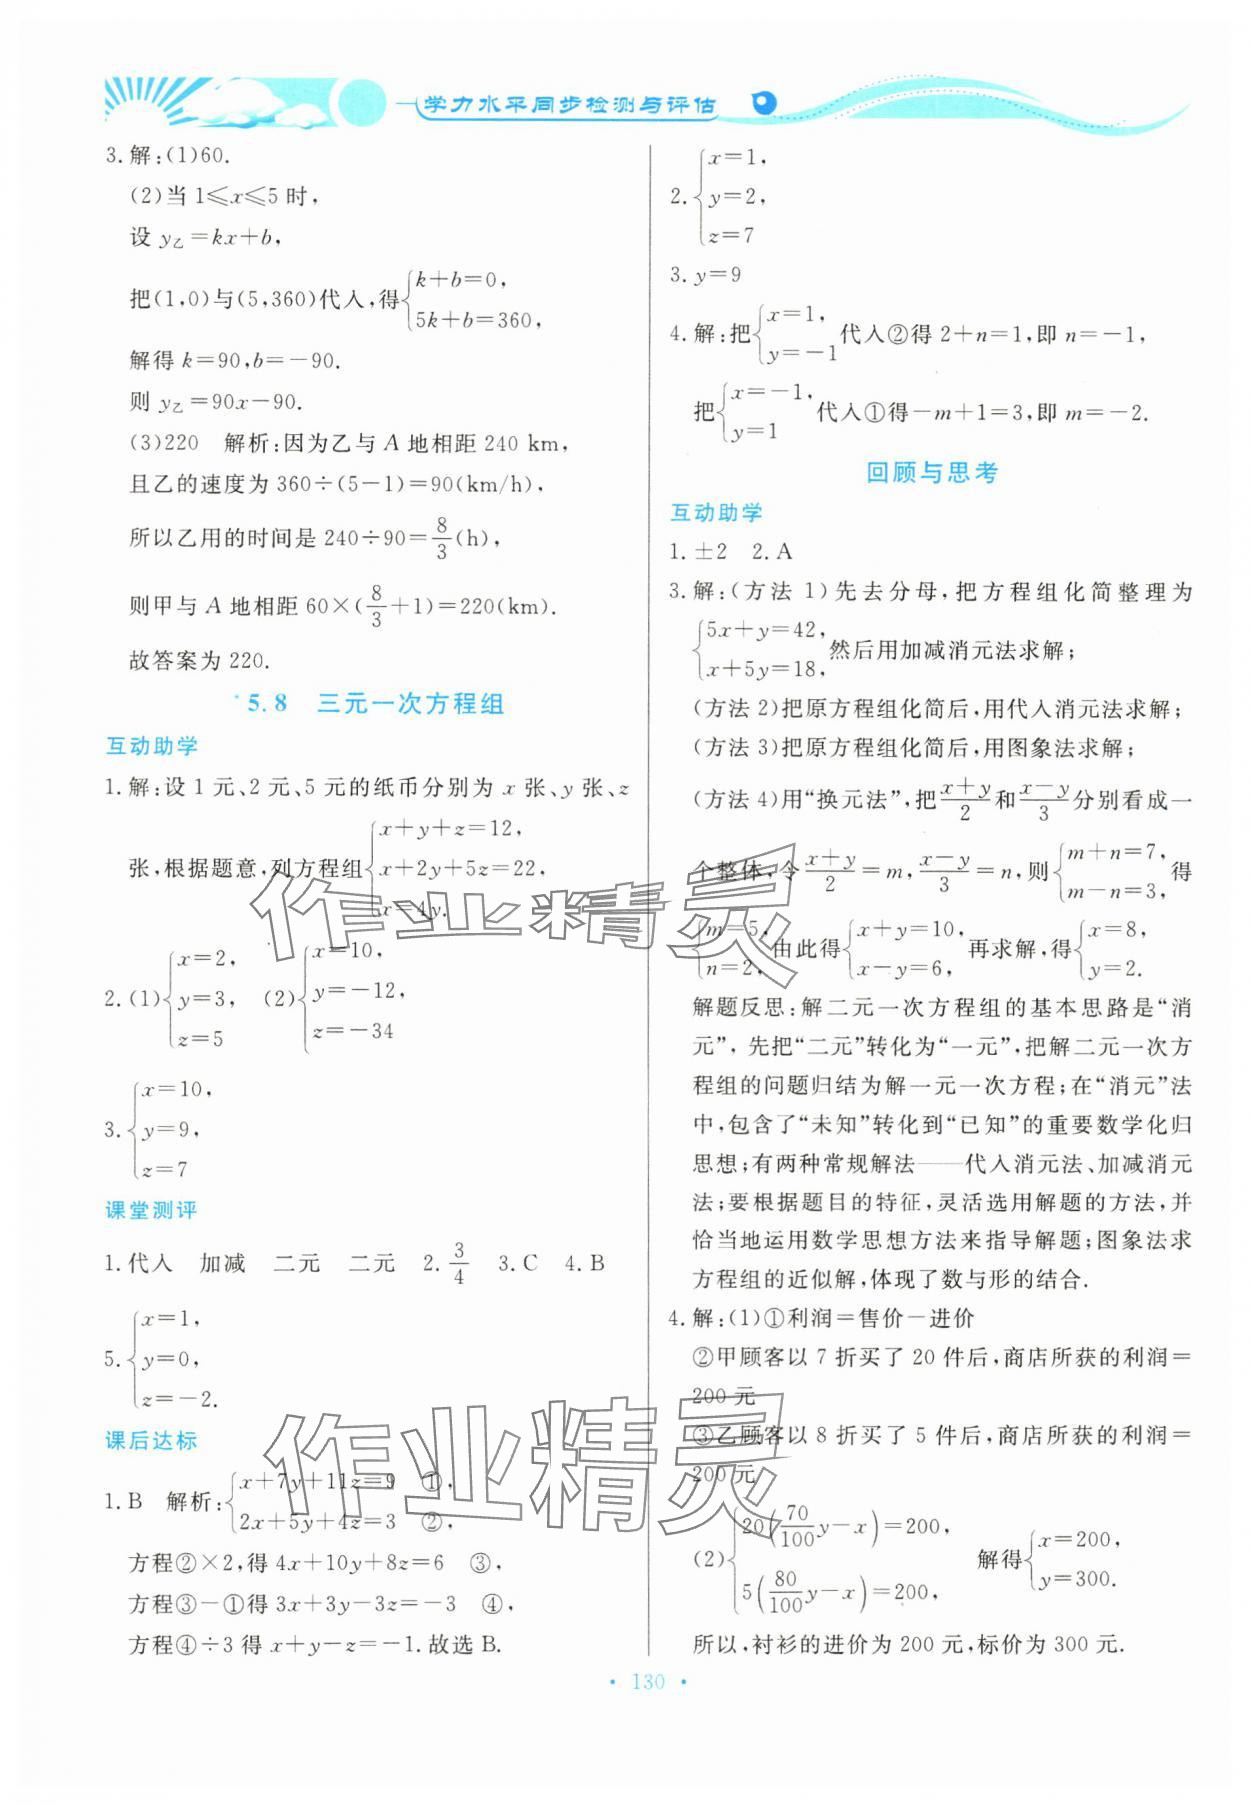 学力水平同步检测与评估
3.解:(1)60.
(2)当 1≤x≤5 时,
设 y乙=kx+b,
把(1,0)与(5,360)代入,得{k+b=0,
5k+b=360,
解得 k=90,b=-90.
则 y乙=90x-90.
(3)220 解析:因为乙与 A 地相距 240 km,
且乙的速度为 360÷(5-1)=90(km/h),
所以乙用的时间是 240÷90=8/3(h),
则甲与 A 地相距 60×(8/3+1)=220(km).
故答案为 220.
5.8 三元一次方程组
互动助学
1.解:设 1 元、2 元、5 元的纸币分别为 x 张、y 张、z
张,根据题意,列方程组{x+y+z=12,
x+2y+5z=22,
x=4y.
2.(1){x=2,
y=3,
z=5
(2){x=10,
y=-12,
z=-34
3.{x=10,
y=9,
z=7
课堂测评
1.代入 加减 二元 二元 2.3/4 3.C 4.B
5.{x=1,
y=0,
z=-2.
课后达标
1.B 解析:{x+7y+11z=9 ①,
2x+5y+4z=3 ②,
方程②×2,得 4x+10y+8z=6 ③,
方程③-①得 3x+3y-3z=-3 ④,
方程④÷3 得 x+y-z=-1.故选 B.
2.{x=1,
y=2,
z=7
3.y=9
4.解:把{x=1,
y=-1
代入②得 2+n=1,即 n=-1,
把{x=-1,
y=1
代入①得-m+1=3,即 m=-2.
回顾与思考
互动助学
1.±2 2.A
3.解:(方法 1)先去分母,把方程组化简整理为
{5x+y=42,
x+5y=18,
然后用加减消元法求解;
(方法 2)把原方程组化简后,用代入消元法求解;
(方法 3)把原方程组化简后,用图象法求解;
(方法 4)用“换元法”,把(x+y)/2和(x-y)/3分别看成一
个整体,令(x+y)/2=m,(x-y)/3=n,则{m+n=7,
m-n=3,
得
{m=5,
n=2,
由此得{x+y=10,
x-y=6,
再求解,得{x=8,
y=2.
解题反思:解二元一次方程组的基本思路是“消
元”,先把“二元”转化为“一元”,把解二元一次方
程组的问题归结为解一元一次方程;在“消元”法
中,包含了“未知”转化到“已知”的重要数学化归
思想;有两种常规解法——代入消元法、加减消元
法;要根据题目的特征,灵活选用解题的方法,并
恰当地运用数学思想方法来指导解题;图象法求
方程组的近似解,体现了数与形的结合.
4.解:(1)①利润=售价-进价
②甲顾客以 7 折买了 20 件后,商店所获的利润=
200 元
③乙顾客以 8 折买了 5 件后,商店所获的利润=
200 元
(2){20(70/100y-x)=200,
5(80/100y-x)=200,
解得{x=200,
y=300.
所以,衬衫的进价为 200 元,标价为 300 元.
·130·
作业精灵
作业精灵